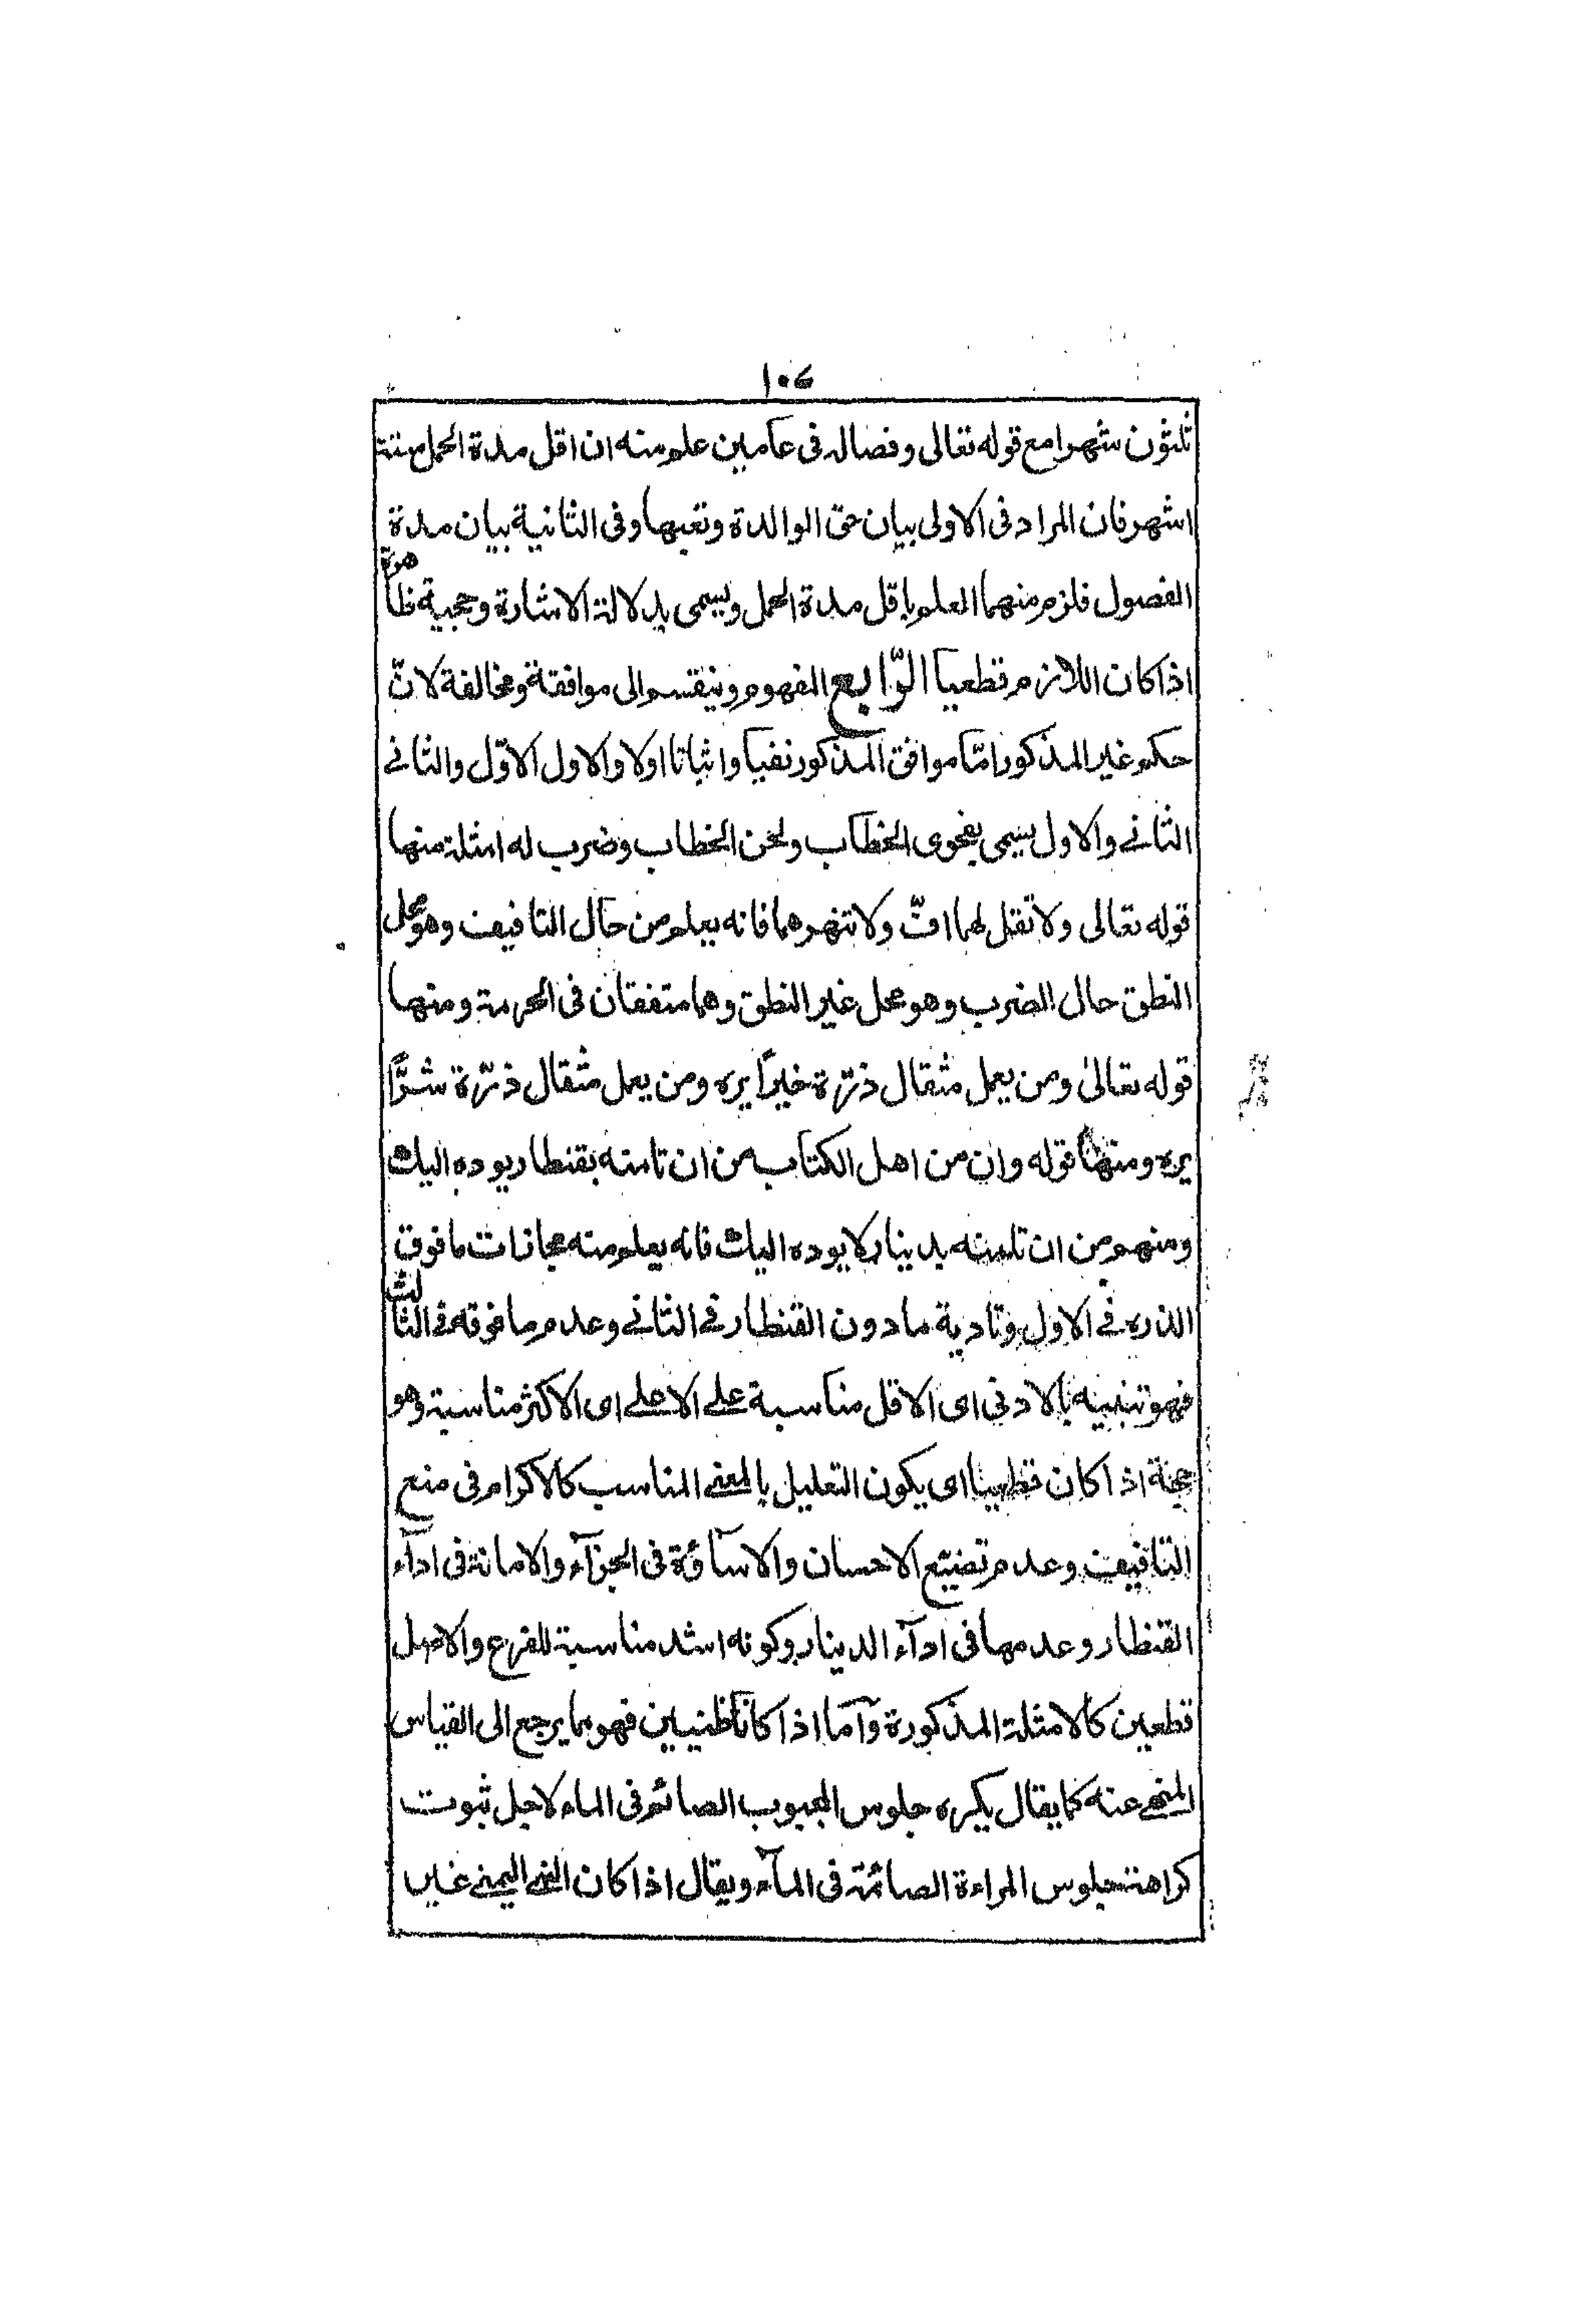 ١٠٤
ثلثون شهرا مع قوله تعالى وفصاله فى عامين علم منه ان اقل مدة الحمل ستة
اشهر فان المراد فى الاولى بيان حق الوالدة وتعبها وفى الثانية بيان مدة
الفصول فلزم منهما العلم باقل مدة الحمل ويسمى بدلالة الاشارة وحجيته ظاهرة
اذا كان اللازم قطعيا الرّابع المفهوم وينقسم الى موافقة ومخالفة لانّ
حكم غير المذكور امّا موافق المذكور نفيا واثباتا اولا والاول الاوّل والثانے
الثانے والاول يسمى بفحوى الخطاب ولحن الخطاب وضرب له امثلة منها
قوله تعالى ولا تقل لهما افّ ولا تنهرهما فانه يعلم من حال التافيف وهو محل
النطق حال الضرب وهو محل غير النطق وهما متفقان فى الحرمة ومنها
قوله تعالى ومن يعمل مثقال ذرّة خيرًا يره ومن يعمل مثقال ذرّة شرًّا
يره ومنها قوله وان من اهل الكتاب من ان تامنه بقنطار يوده اليك
ومنهم من ان تامنه بدينار لا يوده اليك فانه يعلم منه مجازات ما فوق
الذره فے الاول وتادية ما دون القنطار فے الثانے وعدم ما فوقه فے الثالث
فهو تنبيه بالادنى اى الاقل مناسبة علے الاعلے اى الاكثر مناسبة وهو
حجة اذا كان قطعيا اى يكون التعليل بالمعنے المناسب كالاكرام فى منع
التافيف وعدم تضييع الاحسان والاساؤة فى الجزآء والامانة فى ادآء
القنطار وعدمها فى ادآء الدينار وكونه اشد مناسبة للفرع والاصل
قطعين كالامثلة المذكورة وآما اذا كانا ظنيين فهو مما يرجع الى القياس
المنهے عنه كما يقال يكره جلوس المجبوب الصائم فى الماء لاجل ثبوت
كراهة جلوس المراءة الصائمة فى المآء ويقال اذا كان اليمنے غير